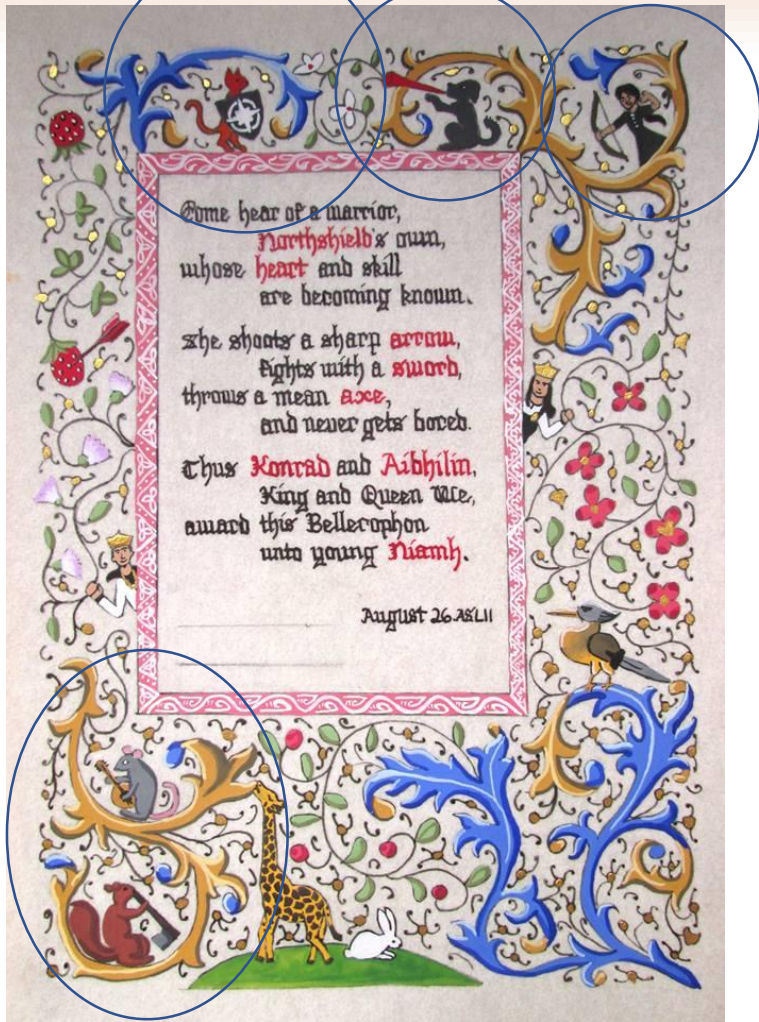 Come hear of a warrior,
Northshield's own,
whose heart and skill
are becoming known.
She shoots a sharp arrow,
fights with a sword,
throws a mean axe,
and never gets bored.
Thus Konrad and Aibhilin,
King and Queen We,
award this Bellerophon
unto young Niamh.
August 26 AS LII